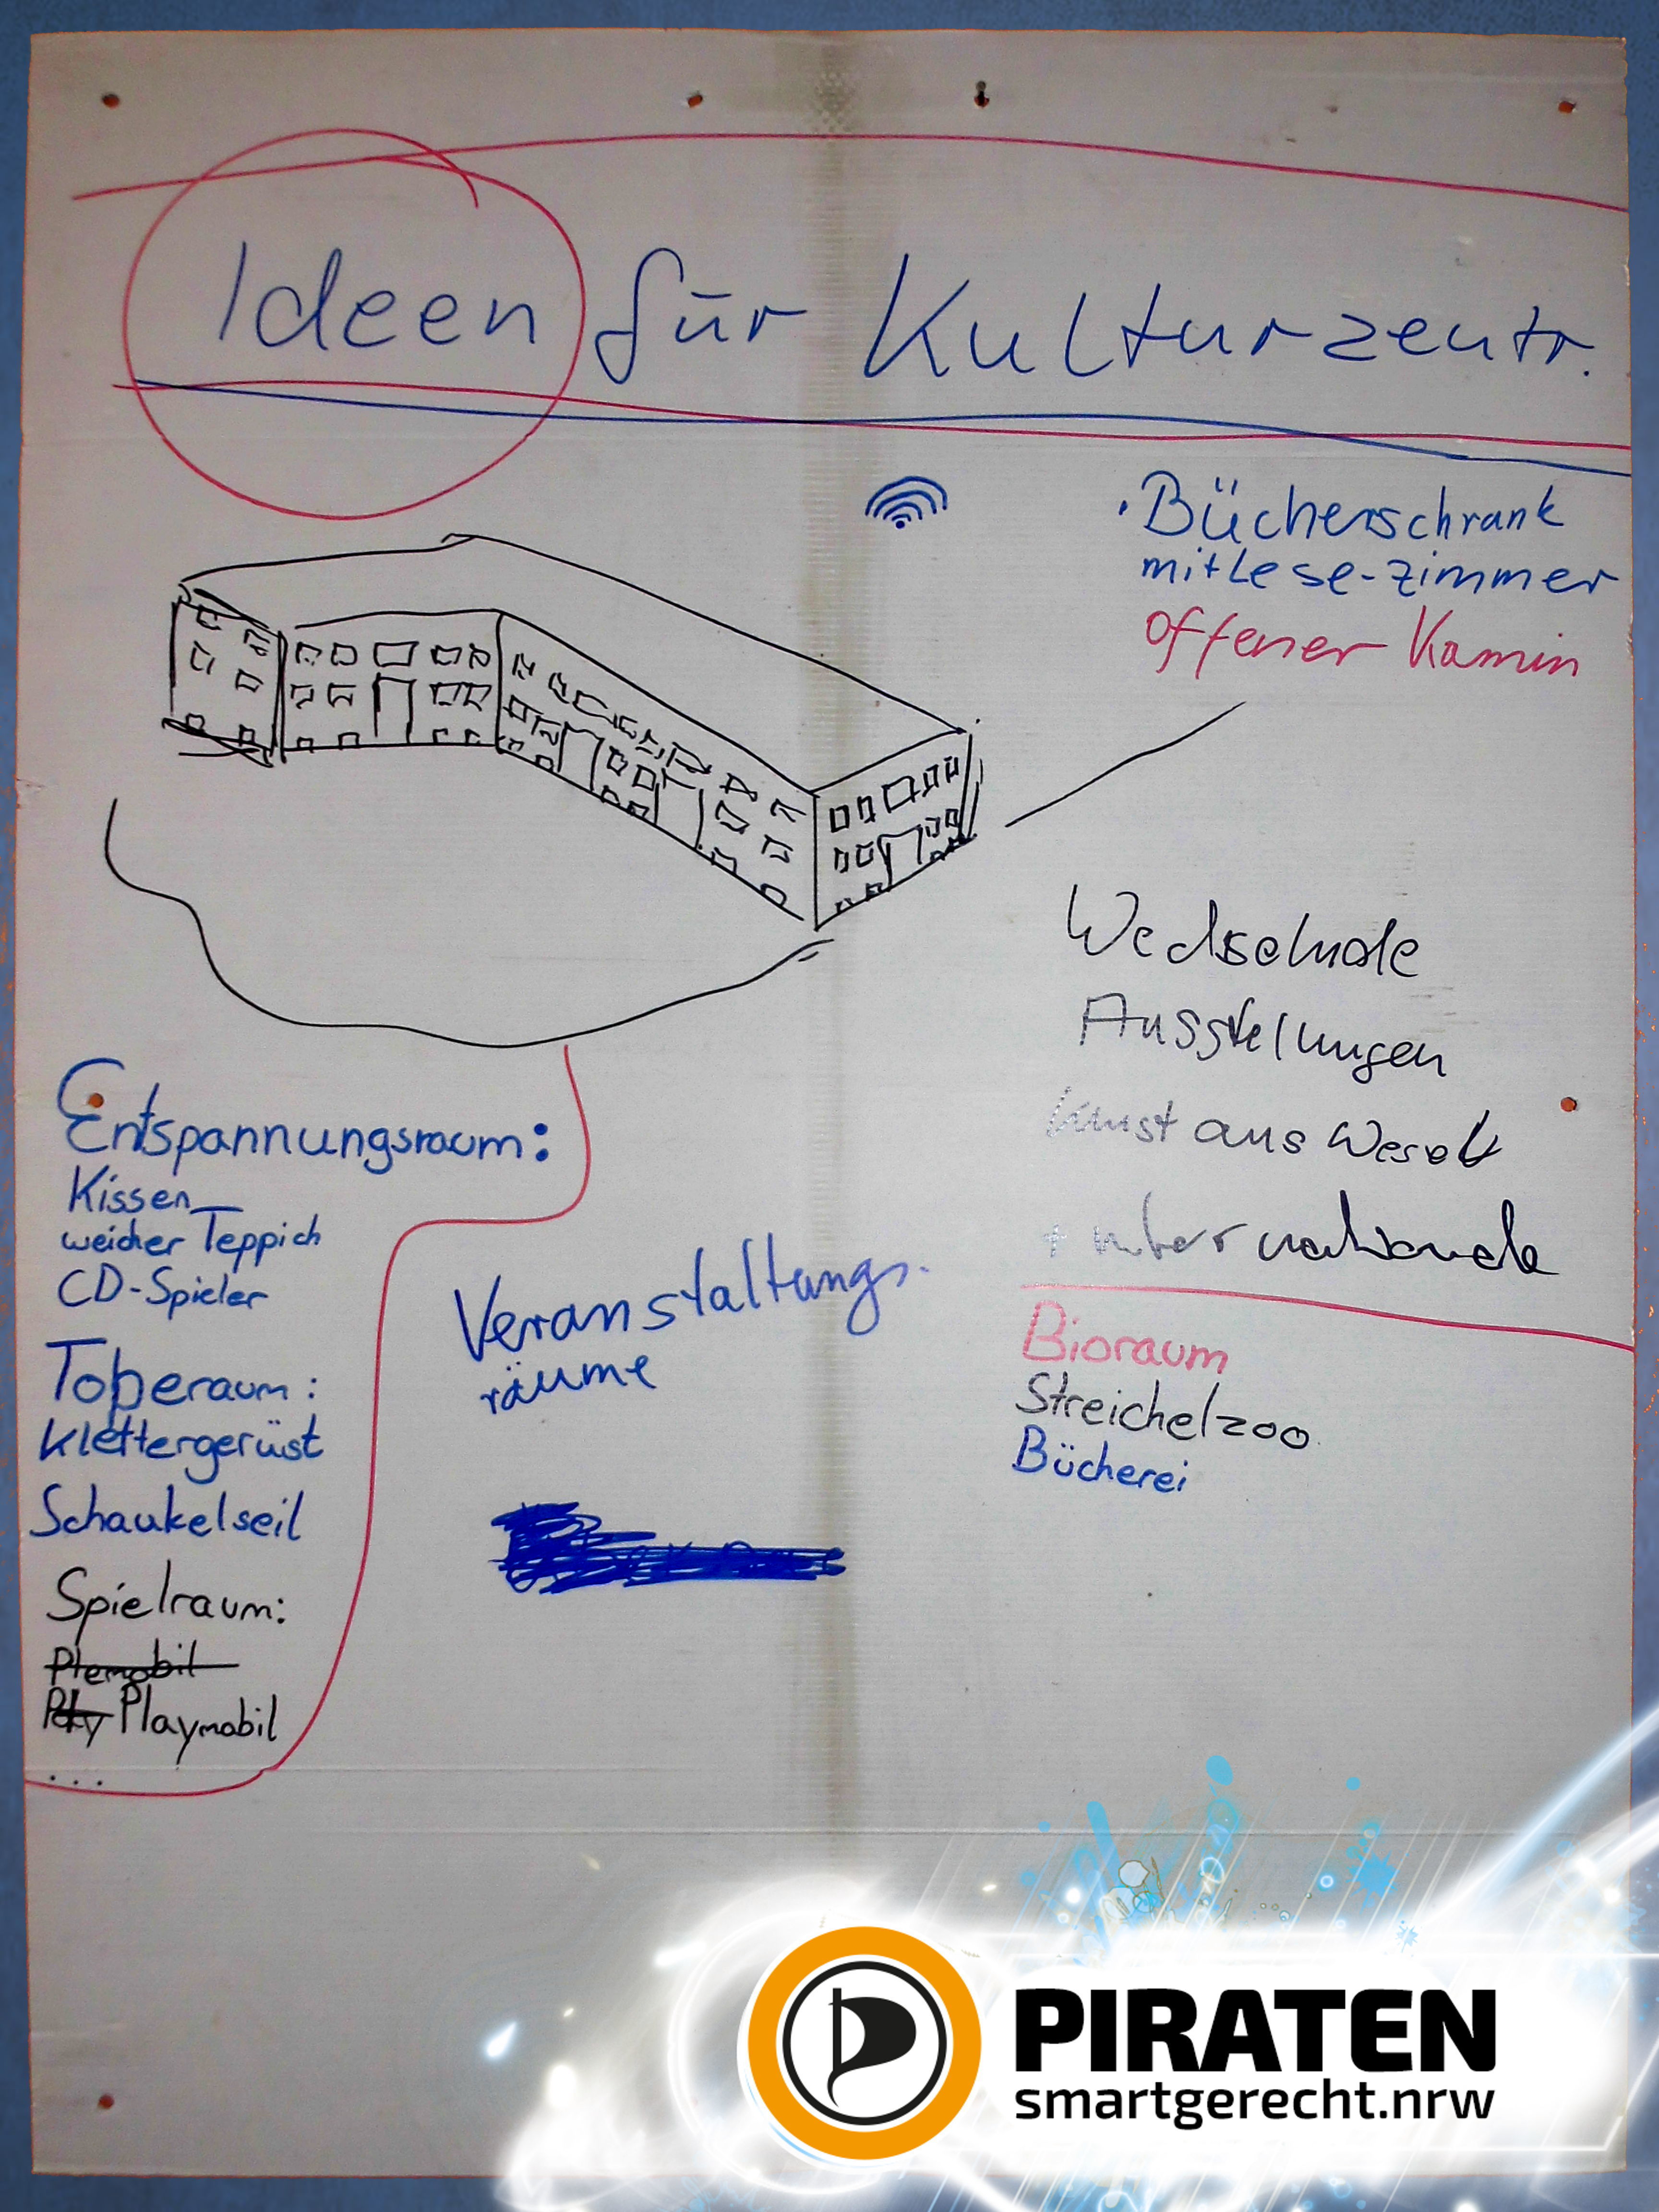 Ideen für Kulturzentr.
· Bücherschrank
mit Lese-Zimmer
offener Kamin
Wechselnde
Ausstellungen
Kunst aus Wesel
+ internationale
Entspannungsraum:
Kissen
weicher Teppich
CD-Spieler
Toberaum:
Klettergerüst
Schaukelseil
Spielraum:
Plemobil
Play Playmobil
...
Veranstaltungs-
räume
Bioraum
Streichelzoo
Bücherei
PIRATEN
smartgerecht.nrw